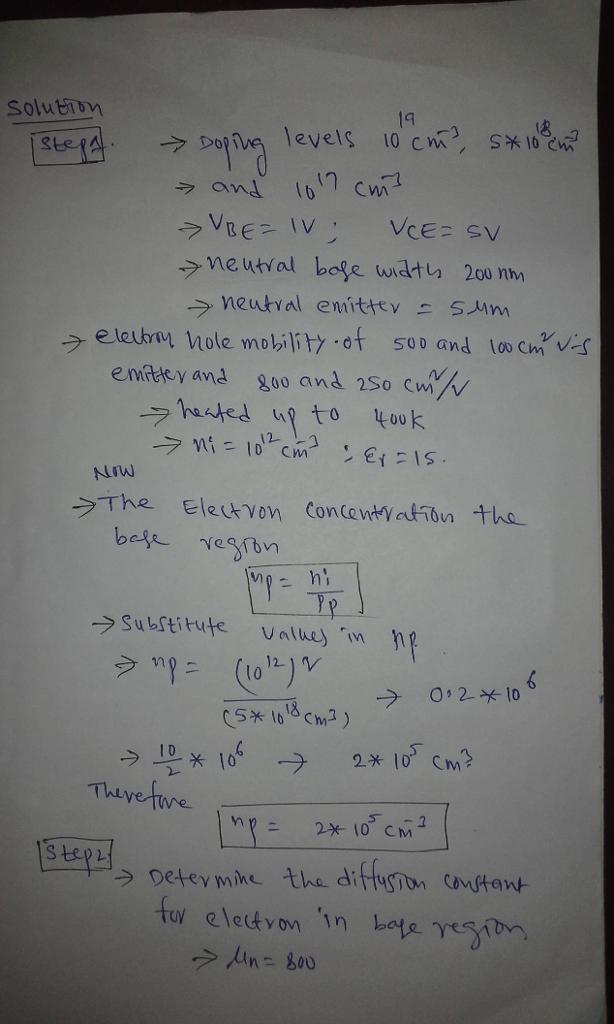 Solution
Step1. → Doping levels 10^19 cm^-3, 5*10^18 cm^-3
→ and 10^17 cm^-3
→ VBE = 1V ; VCE = 5V
→ neutral base width 200 nm
→ neutral emitter = 5 µm
→ electron hole mobility of 500 and 100 cm² v-s
emitter and 800 and 250 cm²/v
→ heated up to 400k
→ ni = 10^12 cm^-3 ; εr = 15.
Now
→ The Electron concentration the
base region
np = ni / Pp
→ Substitute values in np
→ np = (10^12)^2 / (5*10^18 cm^-3) → 0.2*10^6
→ 10/2 * 10^6 → 2*10^5 cm^-3
Therefore
np = 2*10^5 cm^-3
Step2 → Determine the diffusion constant
for electron in base region
→ µn = 800